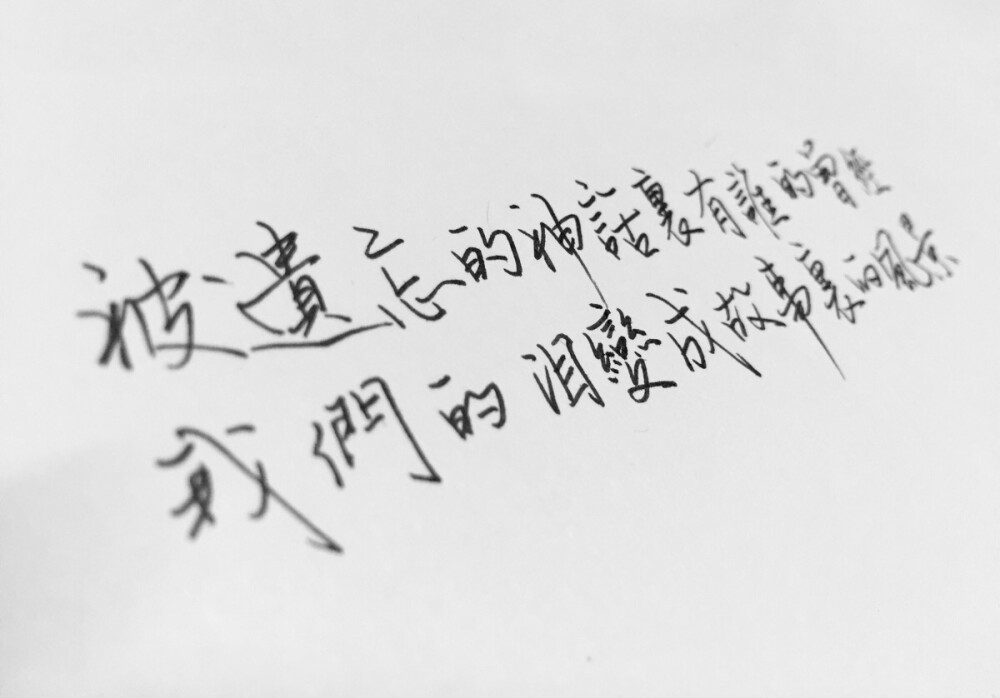 被遺忘的神話裏有誰的曾經
我們的淚變成故事裏的風景